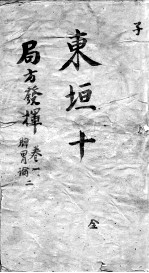 子
東垣十
全
局方發揮 卷一
脾胃論 二